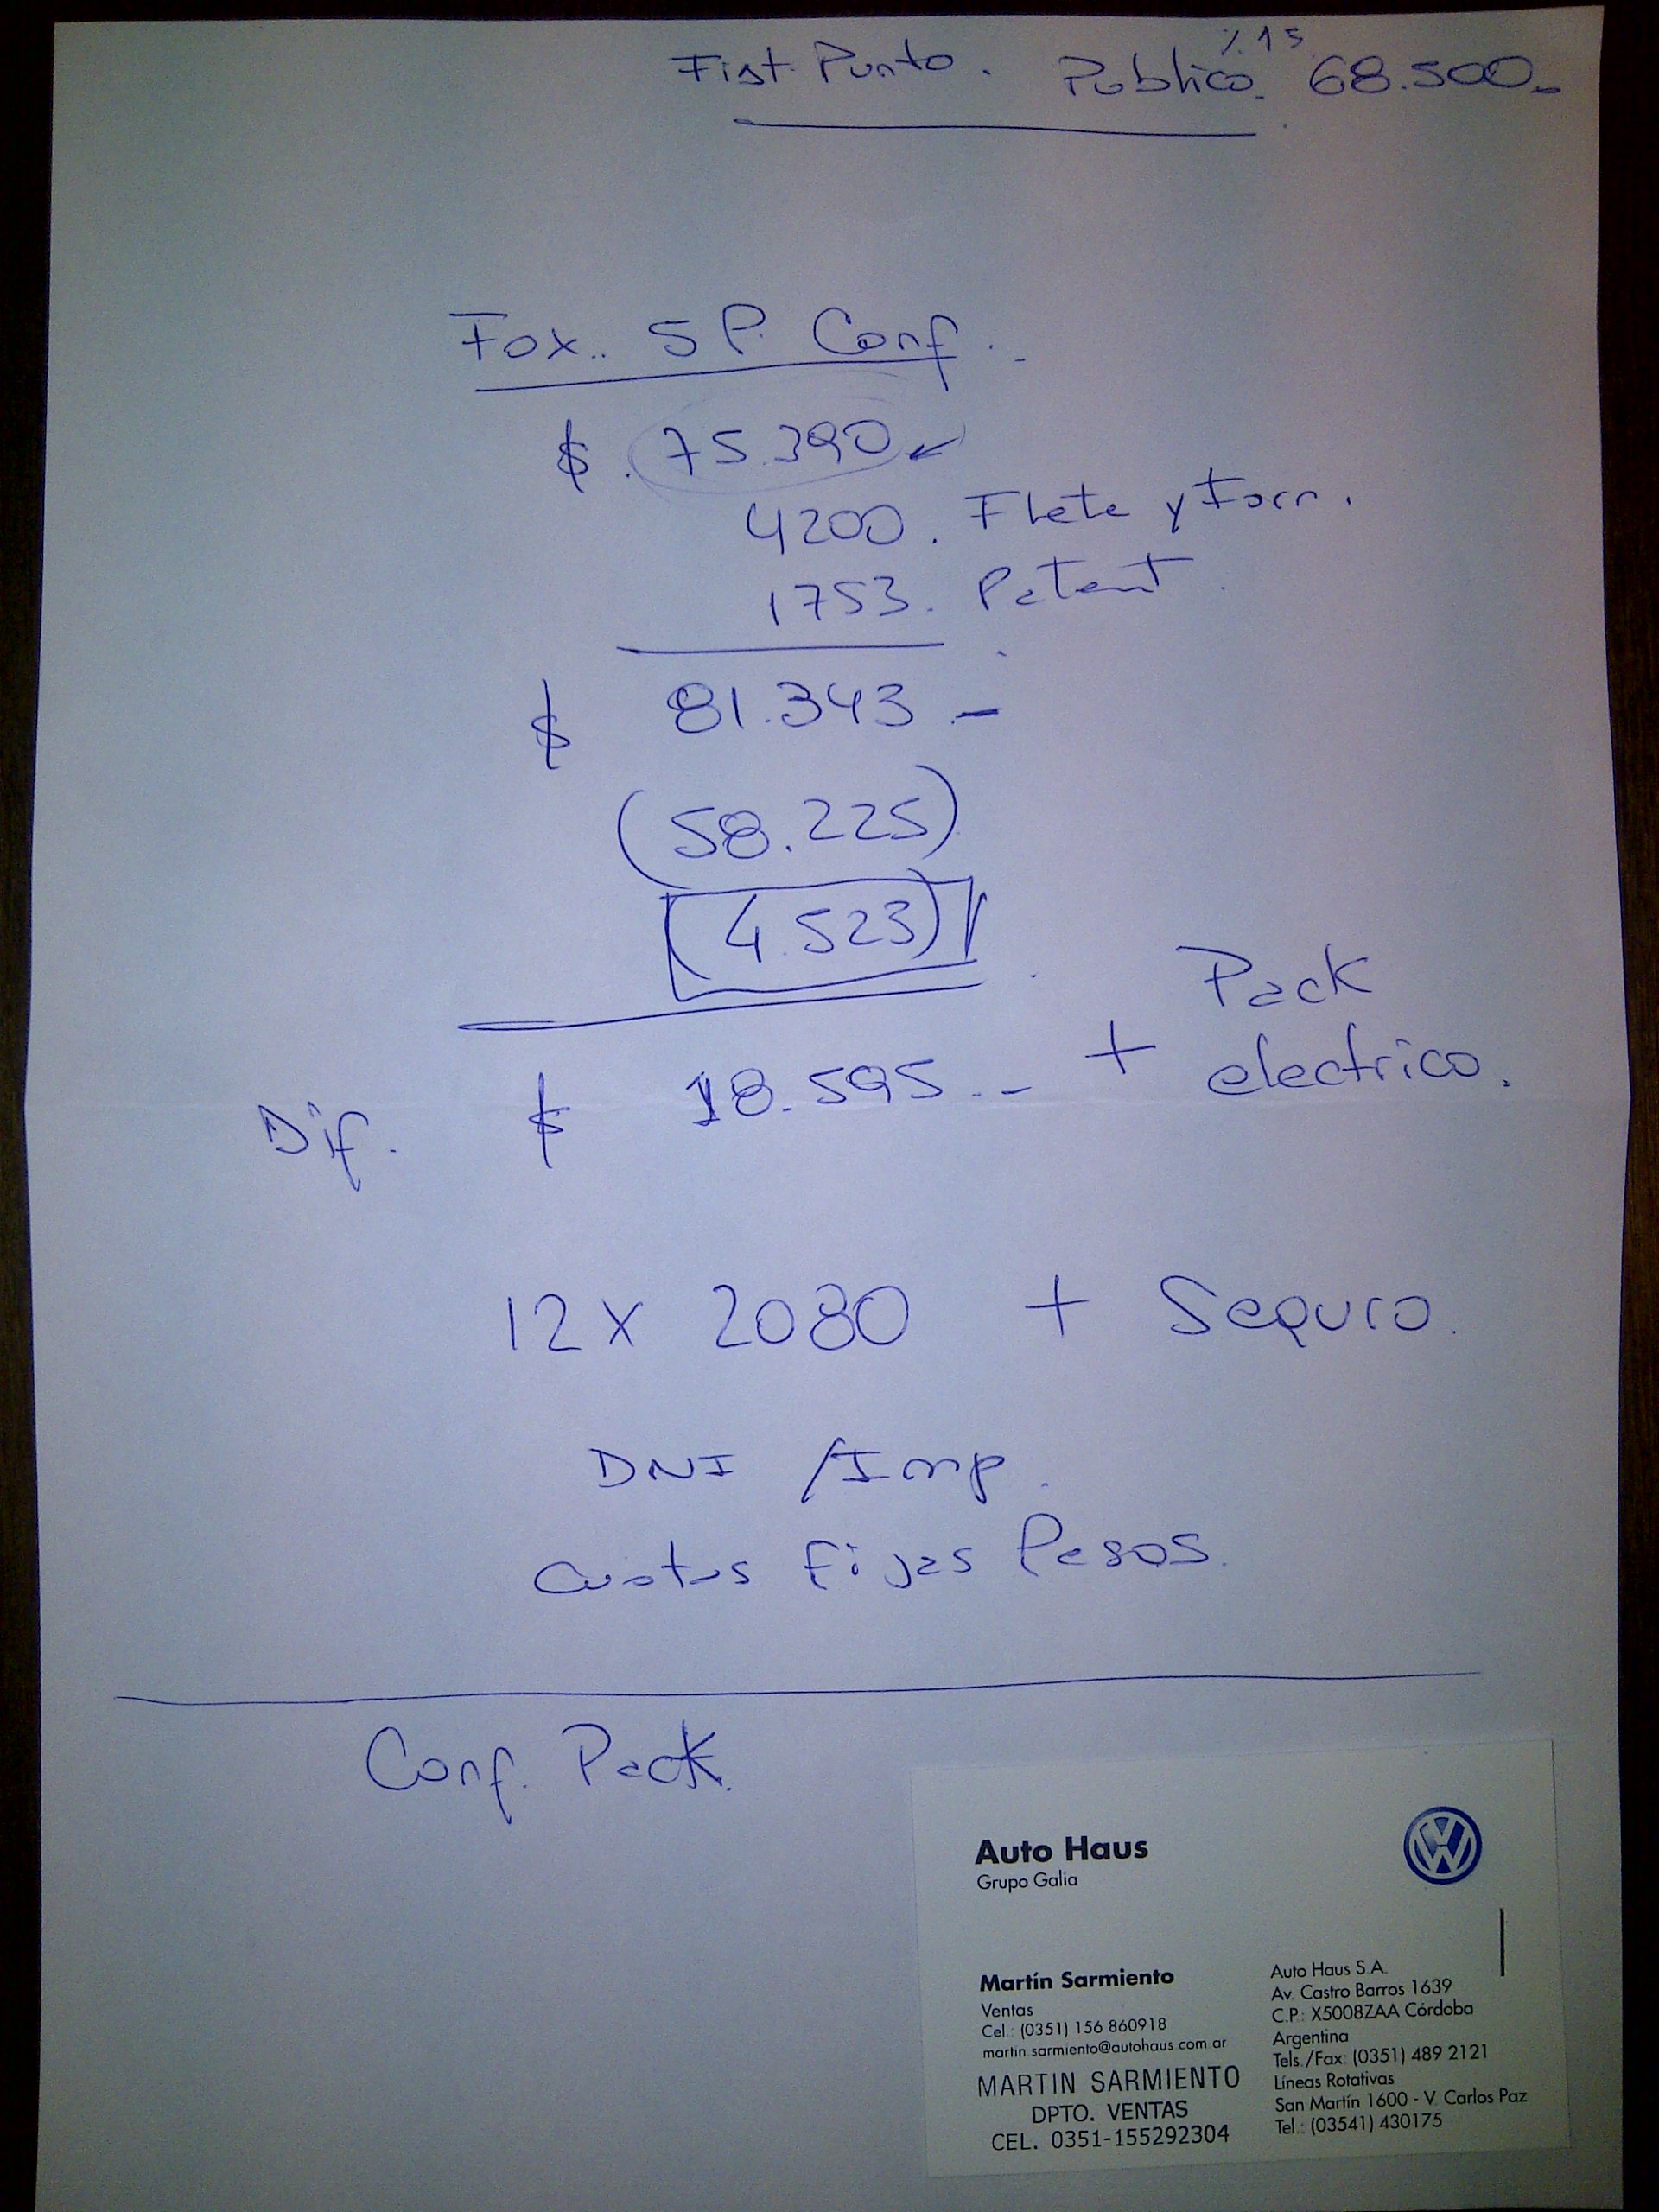 % 15
Fiat Punto. Publico. 68.500.-
Fox.. 5 P. Conf.
$. 75.390
4200. Flete y Form.
1753. Patent.
$ 81.343 -
(58.225)
(4.523)
Pack
Dif. $ 18.595.- + electrico.
12 x 2080 + Seguro.
DNI / Imp.
Cuotas Fijas Pesos.
Conf. Pack.
Auto Haus
Grupo Galia
Martín Sarmiento
Ventas
Cel.: (0351) 156 860918
martin.sarmiento@autohaus.com.ar
MARTIN SARMIENTO
DPTO. VENTAS
CEL. 0351-155292304
Auto Haus S.A.
Av. Castro Barros 1639
C.P.: X5008ZAA Córdoba
Argentina
Tels./Fax: (0351) 489 2121
Líneas Rotativas
San Martín 1600 - V. Carlos Paz
Tel.: (03541) 430175